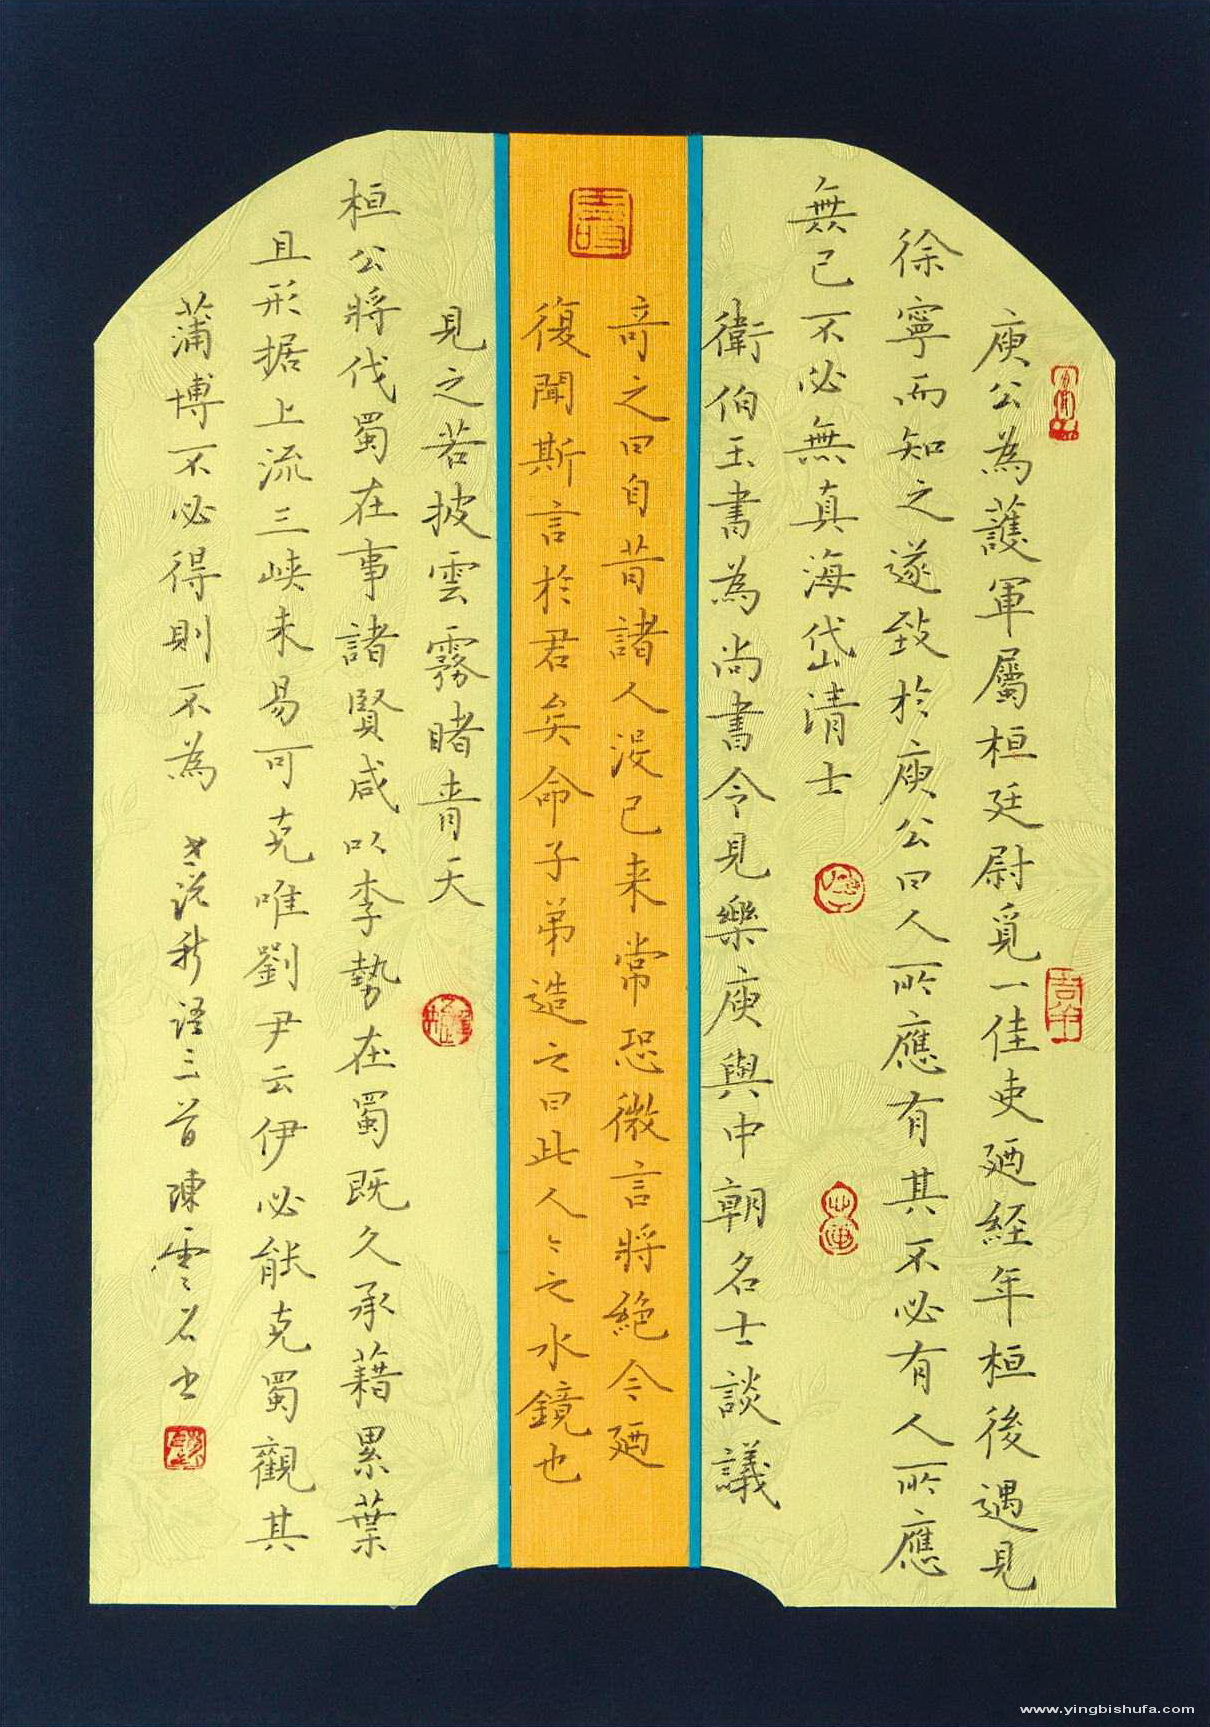 庾公為護軍屬桓廷尉覓一佳吏廼経年桓後遇見
徐寧而知之遂致於庾公曰人所應有其不必有人所應
無己不必無真海岱清士
衛伯玉書為尚書令見樂庾與中朝名士談議
奇之曰自昔諸人沒已来常恐微言将絕今廼
復聞斯言於君矣命子弟造之曰此人人之水鏡也
見之若披雲霧睹青天
桓公將伐蜀在事諸賢咸以李勢在蜀既久承藉累葉
且形据上流三峡未易可克唯劉尹云伊必能克蜀觀其
蒲博不必得則不為 世說新語三首 陳雲名書
www.yingbishufa.com